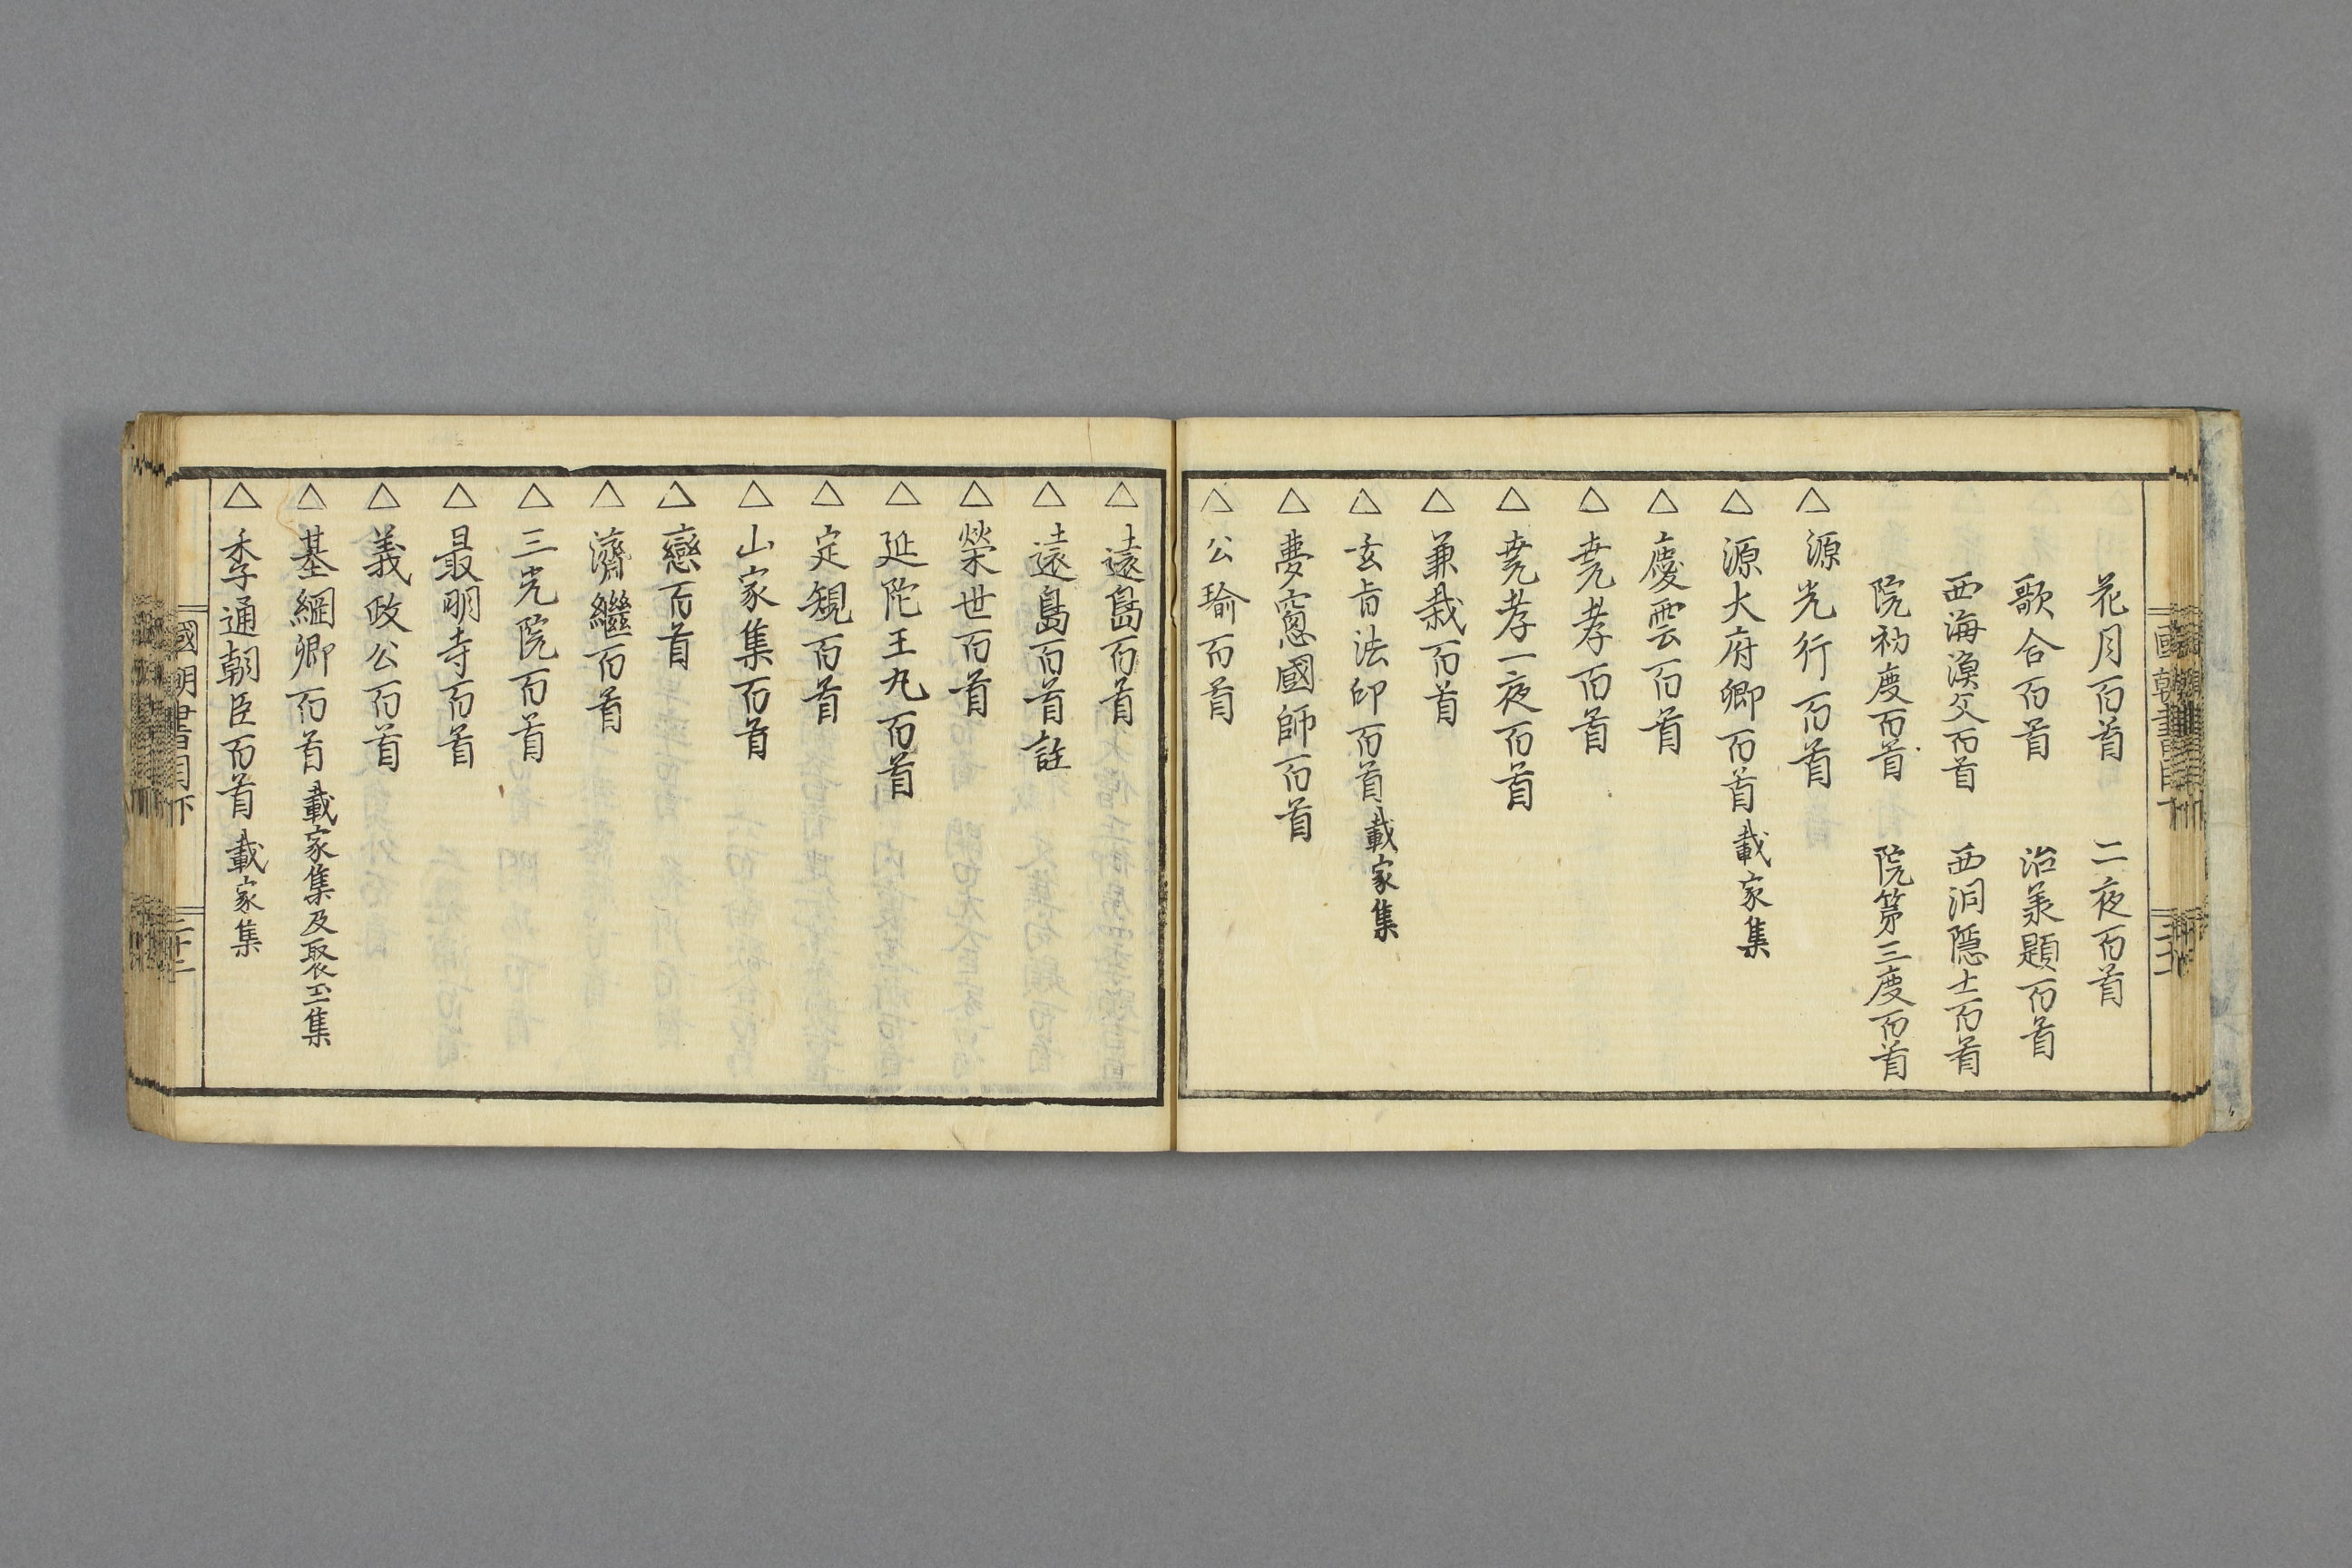 花月百首 二夜百首
歌合百首 治承題百首
西海漁父百首 西洞隱士百首
院初度百首 院第三度百首
△ 源光行百首
△ 源大府卿百首 載家集
△ 慶雲百首
△ 尭孝百首
△ 尭孝一夜百首
△ 兼栽百首
△ 玄旨法印百首 載家集
△ 夢窓國師百首
△ 公瑜百首
△ 遠島百首
△ 遠島百首註
△ 榮世百首
△ 延陀王丸百首
△ 定親百首
△ 山家集百首
△ 戀百首
△ 濟繼百首
△ 三光院百首
△ 最明寺百首
△ 義政公百首
△ 基綱卿百首 載家集及聚玉集
△ 季通朝臣百首 載家集
國朝書目下